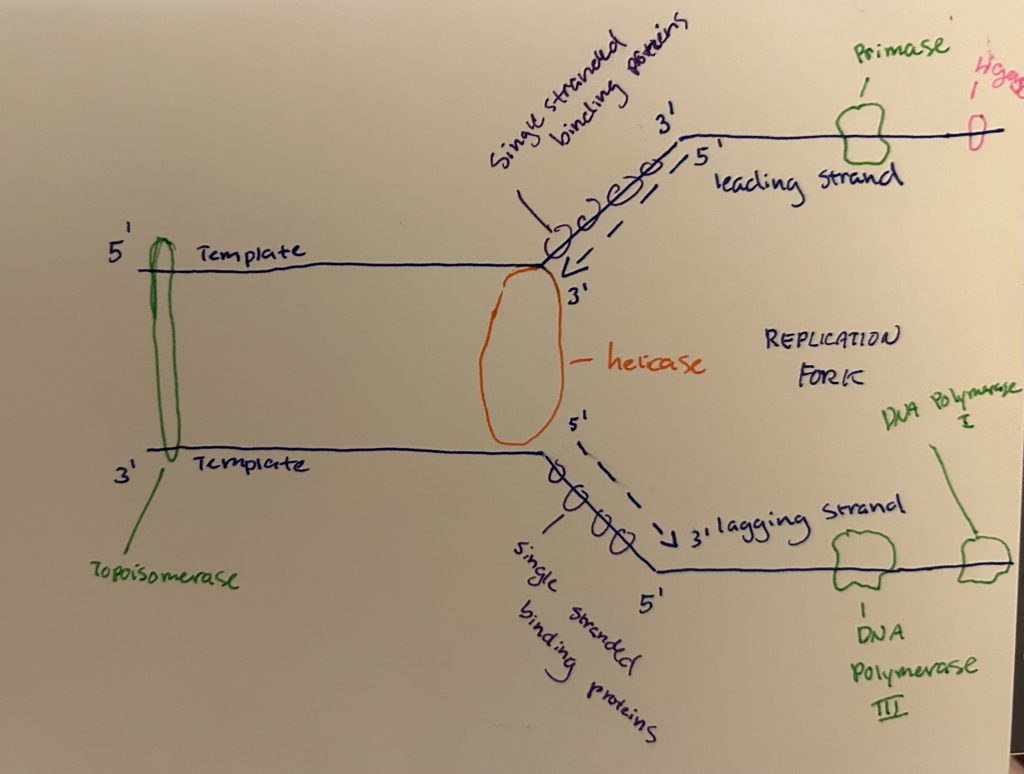 Single stranded
binding proteins
Primase
Ligase
3'
5'
leading strand
5'
Template
3'
helicase
REPLICATION
FORK
DNA Polymerase
I
5'
3'
Template
3' lagging strand
5'
Topoisomerase
Single stranded
binding proteins
DNA
Polymerase
III